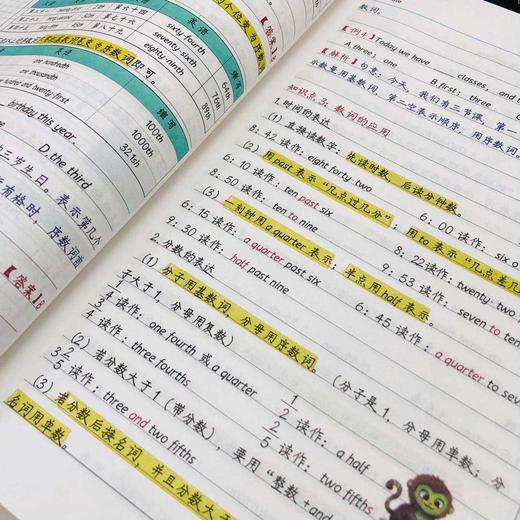 英语
缩写
第六十四
sixty fourth
64th
第七十六
seventy sixth
76th
第八十九
eighty ninth
89th
个位变为序数
【答案】
变为序数词即可。
英语
缩写
one hundredth
100th
one thousandth
1000th
hundred and twenty-first
321st
birthday this year.
D. the third
三岁生日。表示第几个
有格时，序数词前
【答案】B
数词。
【例1】Today we have
classes, and
A. three; one
B. first; three
【解析】句意：今天，我们有三节课，第一
示数量用基数词，第二空表示顺序，用序数词。
知识点3：数词的应用
1. 时间的表达
(1) 直接读数字：先读时数，后读分钟数。
8：42 读作：eight forty-two
6：00 读作：six o
(2) 用 past 表示“几点过几分”；用 to 表示“几点差几
6：10 读作：ten past six
8：50 读作：ten to nine
8：22 读作：twenty-two
(3) 一刻钟用 a quarter 表示；半点用 half 表示。
6：15 读作：a quarter past six
9：53 读作：seven to ten
9：30 读作：half past nine
6：45 读作：a quarter to se
2. 分数的表达
(1) 分子用基数词，分母用序数词。（分子是1，分母用单数；分
子大于1，分母用复数）
1/4 读作：one fourth 或 a quarter
1/2 读作：a half
3/4 读作：three fourths
2/5 读作：two fifths
(2) 若分数大于1（带分数），要用“整数+and
3 2/5 读作：three and two fifths
(3) 若分数后接名词，并且分数大于
名词用单数。